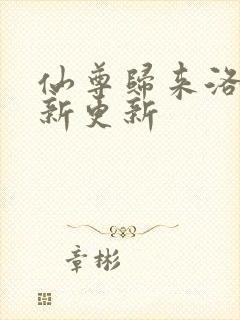 仙尊歸来洛
新更新
章彬